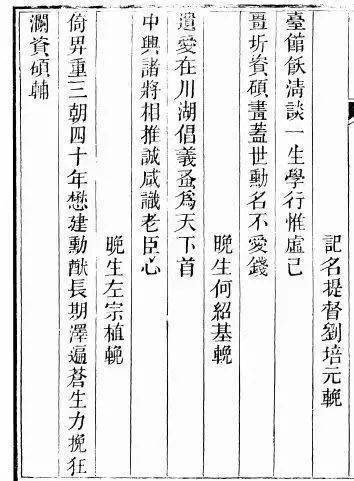 記名提督劉培元輓
臺館飫清談一生學行惟虛己
畺圻資碩畫蓋世勳名不愛錢
晚生何紹基輓
遺愛在川湖倡義蚤爲天下首
中興諸將相推誠咸識老臣心
晚生左宗植輓
倚畀重三朝四十年懋建勳猷長期澤遍蒼生力挽狂
瀾資碩輔